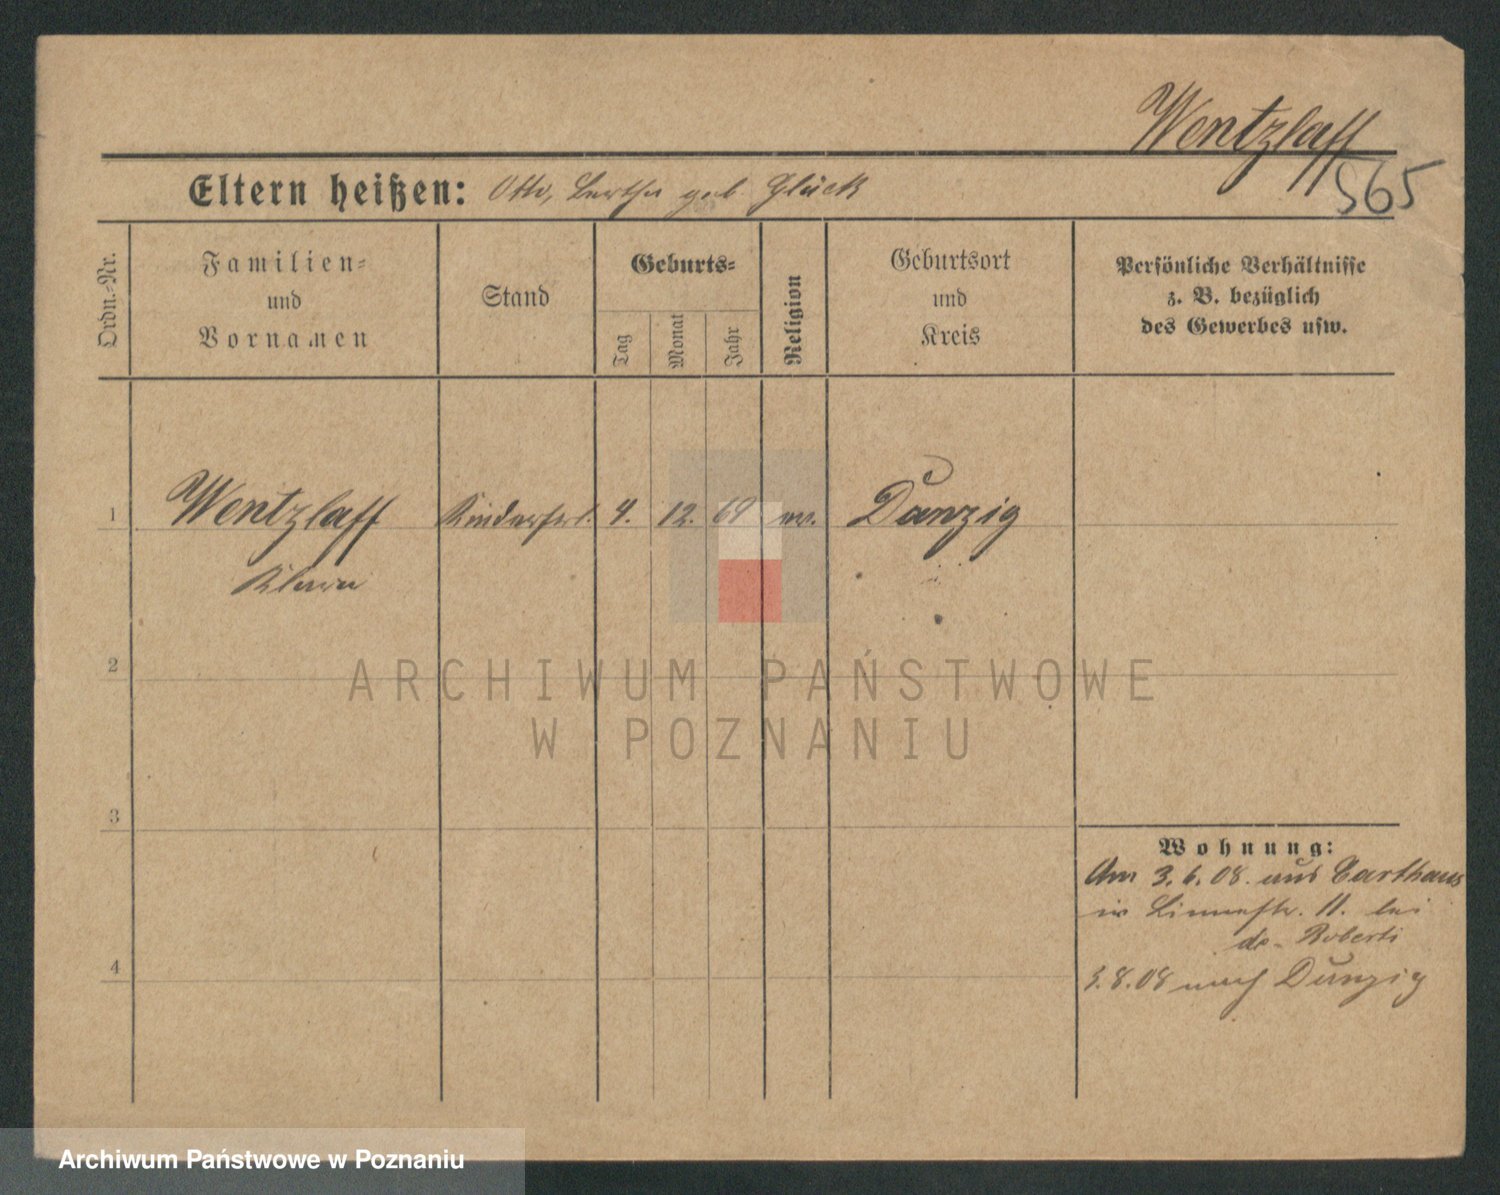 Wentzlaff
565
Eltern heißen: Otto, Bertha geb. Glück
Ordn.-Nr.
Familien-
und
Vornamen
Stand
Geburts-
Tag
Monat
Jahr
Religion
Geburtsort
und
Kreis
Persönliche Verhältnisse
z. B. bezüglich
des Gewerbes usw.
1 Wentzlaff Kinderfrl. 4. 12. 69 ev. Danzig
Klara
2
ARCHIWUM PAŃSTWOWE
W POZNANIU
3
Wohnung:
Am 3.6.08. aus Carthaus
in 11. bei
Roberti
4
3.8.08 nach Danzig
Archiwum Państwowe w Poznaniu